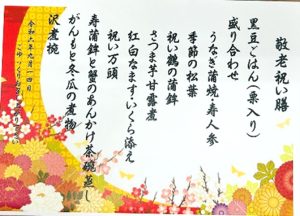 敬老祝い膳
黒豆ごはん(栗入り)
盛り合わせ
うなぎ蒲焼・寿人参
季節の松葉
祝い鶴の蒲鉾
さつま芋甘露煮
紅白なますいくら添え
祝い万頭
寿蒲鉾と蟹のあんかけ茶碗蒸し
がんもと冬瓜の煮物
沢煮椀
令和六年九月一四日